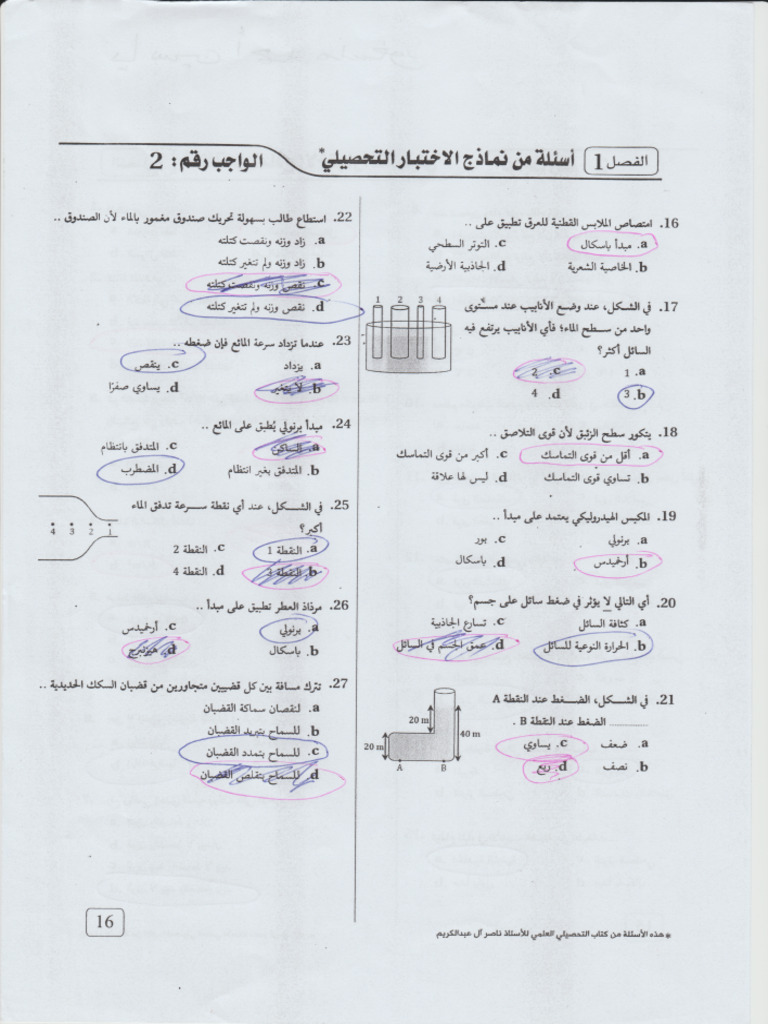 الفصل 1
أسئلة من نماذج الاختبار التحصيلي*
الواجب رقم: 2
16. امتصاص الملابس القطنية للعرق تطبيق على ..
a. مبدأ باسكال c. التوتر السطحي
b. الخاصية الشعرية d. الجاذبية الأرضية
17. في الشكل، عند وضع الأنابيب عند مستوى
واحد من سطح الماء؛ فأي الأنابيب يرتفع فيه
السائل أكثر؟
a. 1 c. 2
b. 3 d. 4
1 2 3 4
18. يتكور سطح الزئبق لأن قوى التلاصق ..
a. أقل من قوى التماسك c. أكبر من قوى التماسك
b. تساوي قوى التماسك d. ليس لها علاقة
19. المكبس الهيدروليكي يعتمد على مبدأ ..
a. برنولي c. بور
b. أرخميدس d. باسكال
20. أي التالي لا يؤثر في ضغط سائل على جسم؟
a. كثافة السائل c. تسارع الجاذبية
b. الحرارة النوعية للسائل d. عمق الجسم في السائل
21. في الشكل، الضغط عند النقطة A
............ الضغط عند النقطة B .
a. ضعف c. يساوي
b. نصف d. ربع
20 m
20 m
40 m
A B
22. استطاع طالب بسهولة تحريك صندوق مغمور بالماء لأن الصندوق ..
a. زاد وزنه ونقصت كتلته
b. زاد وزنه ولم تتغير كتلته
c. نقص وزنه ونقصت كتلته
d. نقص وزنه ولم تتغير كتلته
23. عندما تزداد سرعة المائع فإن ضغطه ..
a. يزداد c. ينقص
b. لا يتغير d. يساوي صفرًا
24. مبدأ برنولي يُطبق على المائع ..
a. الساكن c. المتدفق بانتظام
b. المتدفق بغير انتظام d. المضطرب
25. في الشكل، عند أي نقطة سرعة تدفق الماء
أكبر؟
a. النقطة 1 c. النقطة 2
b. النقطة 3 d. النقطة 4
4 3 2 1
26. مرذاذ العطر تطبيق على مبدأ ..
a. برنولي c. أرخميدس
b. باسكال d. هيزنبرج
27. تترك مسافة بين كل قضيبين متجاورين من قضبان السكك الحديدية ..
a. لنقصان سماكة القضبان
b. للسماح بتبريد القضبان
c. للسماح بتمدد القضبان
d. للسماح بتقلص القضبان
* هذه الأسئلة من كتاب التحصيلي العلمي للأستاذ ناصر آل عبدالكريم
16